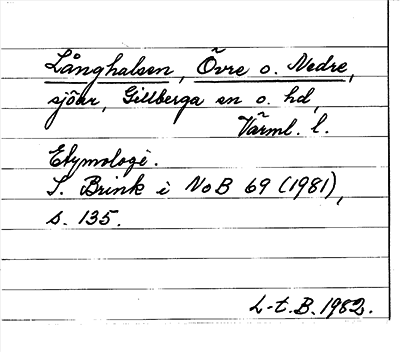 Långhalsen, Övre o. Nedre,
sjöar, Gillberga sn o. hd,
Värml. l.
Etymologi.
S. Brink i NoB 69 (1981),
s. 135.
L-t. B. 1982.